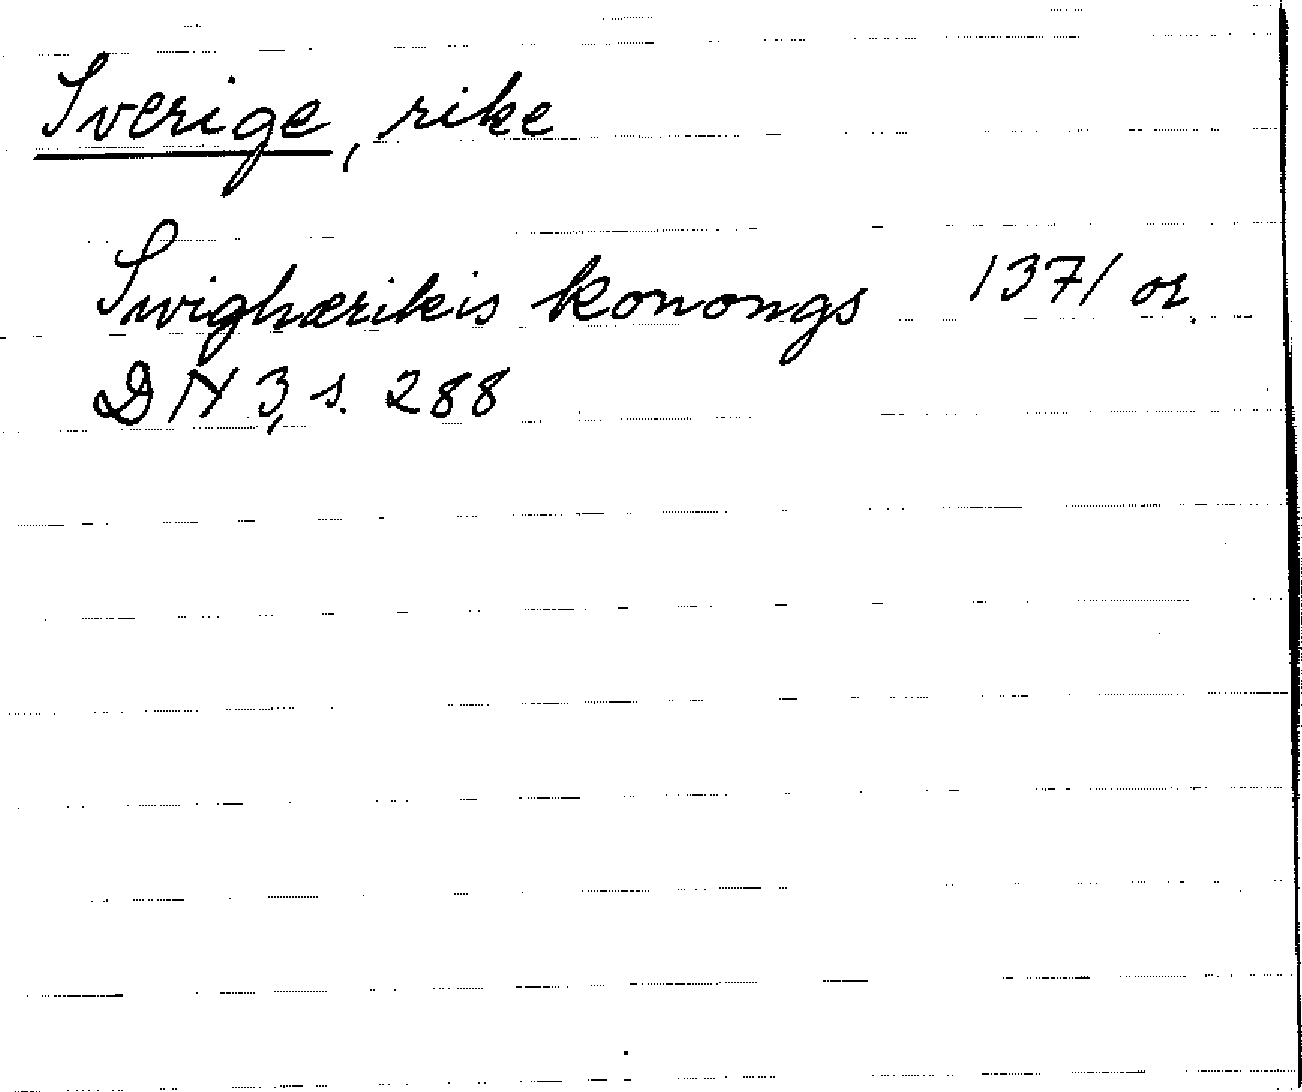 Sverige, rike
Swighærikis konongs 1371 or.
DN 3, s. 288